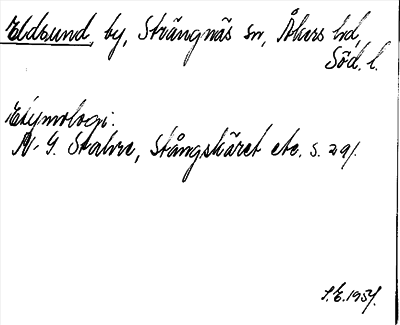 Eldsund, by, Strängnäs sn, Åkers hd,
Söd. l.
Etymologi:
N. G. Stahre, Stångskäret etc. s. 291.
S. E. 1957.